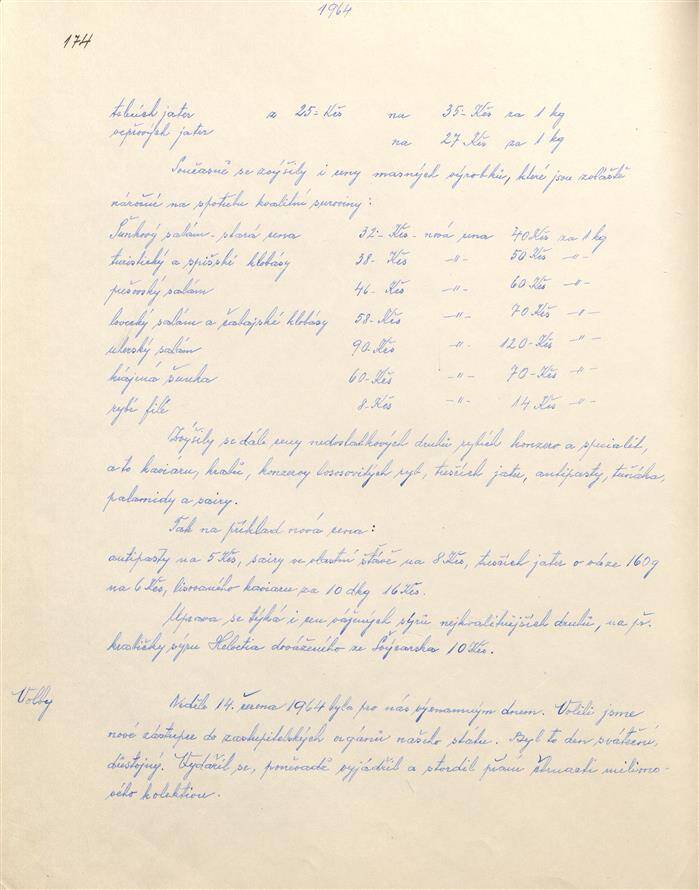 1964
174
telecích jater z 25.- Kčs na 35.- Kčs za 1 kg
vepřových jater na 27 Kčs za 1 kg
Současně se zvýšily i ceny masných výrobků, které jsou zvláště
náročné na spotřebu kvalitní suroviny:
Šunkový salám - stará cena 32.- Kčs - nová cena 40 Kčs za 1 kg
turistický a spišské klobásy 38.- Kčs -"- 50 Kčs -"-
prešovský salám 46.- Kčs -"- 60 Kčs -"-
lovecký salám a čabajské klobásy 58.- Kčs -"- 70 Kčs -"-
uherský salám 90.- Kčs -"- 120.- Kčs -"-
krájená šunka 60.- Kčs -"- 70.- Kčs -"-
rybí filé 8.- Kčs -"- 14 Kčs -"-
Zvýšily se dále ceny nedostatkových druhů rybích konzerv a specialit,
a to kaviáru, krabů, konzervy lososovitých ryb, tresčích jater, antipasty, tuňáka,
palamidy a sairy.
Tak na příklad nová cena:
antipasty na 5 Kčs, sairy ve vlastní šťávě na 8 Kčs, tresčích jater o váze 160g
na 6 Kčs, lisovaného kaviaru za 10 dkg 16 Kčs.
Úprava se týká i cen vážených sýrů nejkvalitnějších druhů, na př.
krabičky sýru Helvetia dováženého ze Švýcarska 10 Kčs.
Volby
Neděle 14. června 1964 byla pro nás významným dnem. Volili jsme
nové zástupce do zastupitelských orgánů našeho státu. Byl to den sváteční,
důstojný. Vydařil se, poněvadž vyjádřil a stvrdil přání čtrnácti milióno-
vého kolektivu.